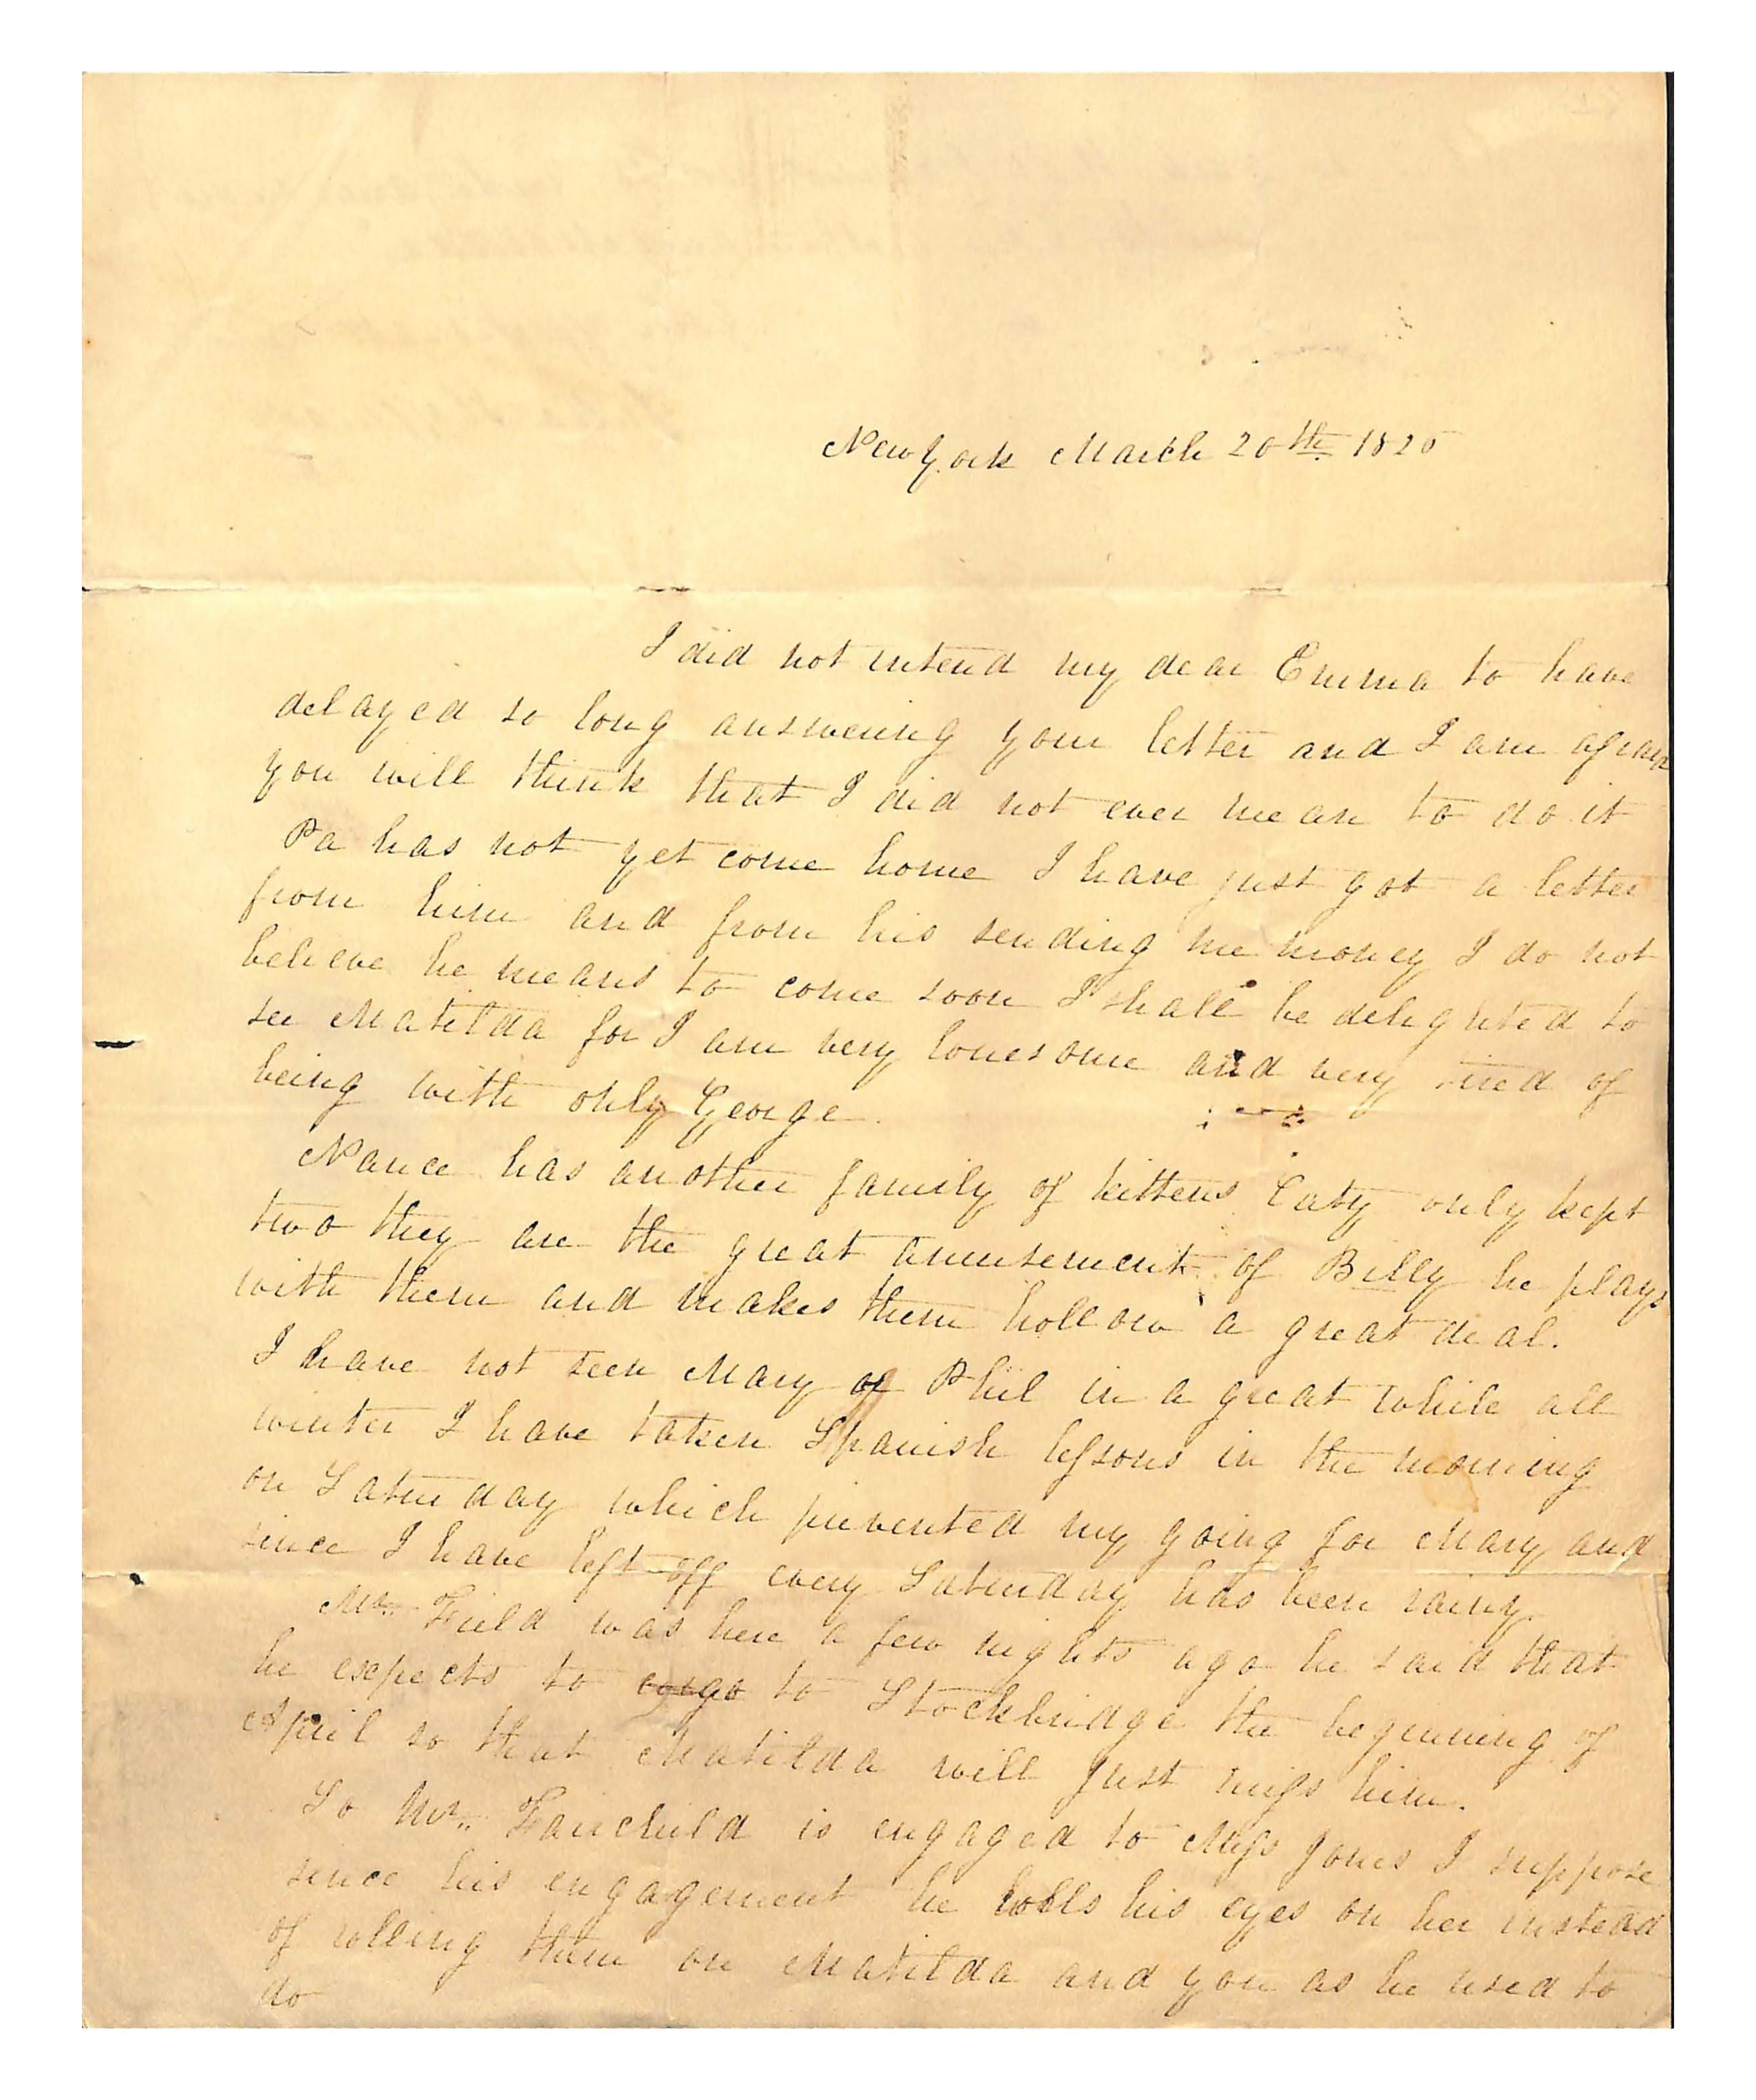 New York March 20th 1825
I did not intend my dear Emma to have
delayed so long answering your letter and I am afraid
you will think that I did not ever mean to do it
Pa has not yet come home I have just got a letter
from him and from his sending me money I do not
believe he means to come soon I shall be delighted to
see Matilda for I am very lonesome and very tired of
being with only George.
Nance has another family of kittens Caty only kept
two they are the great amusement of Billy he plays
with them and makes them hollow a great deal.
I have not seen Mary or Phil in a great while all
winter I have taken Spanish lessons in the morning
on Saturday which prevented my going for Mary and
since I have left off every Saturday has been rainy.
Mr. Field was here a few nights ago he said that
he expects to go to Stockbridge the beginning of
April so that Matilda will just miss him.
So Mr. Fairchild is engaged to Miss Jones I suppose
since his engagement he rolls his eyes on her instead
of rolling them on Matilda and you as he used to
do